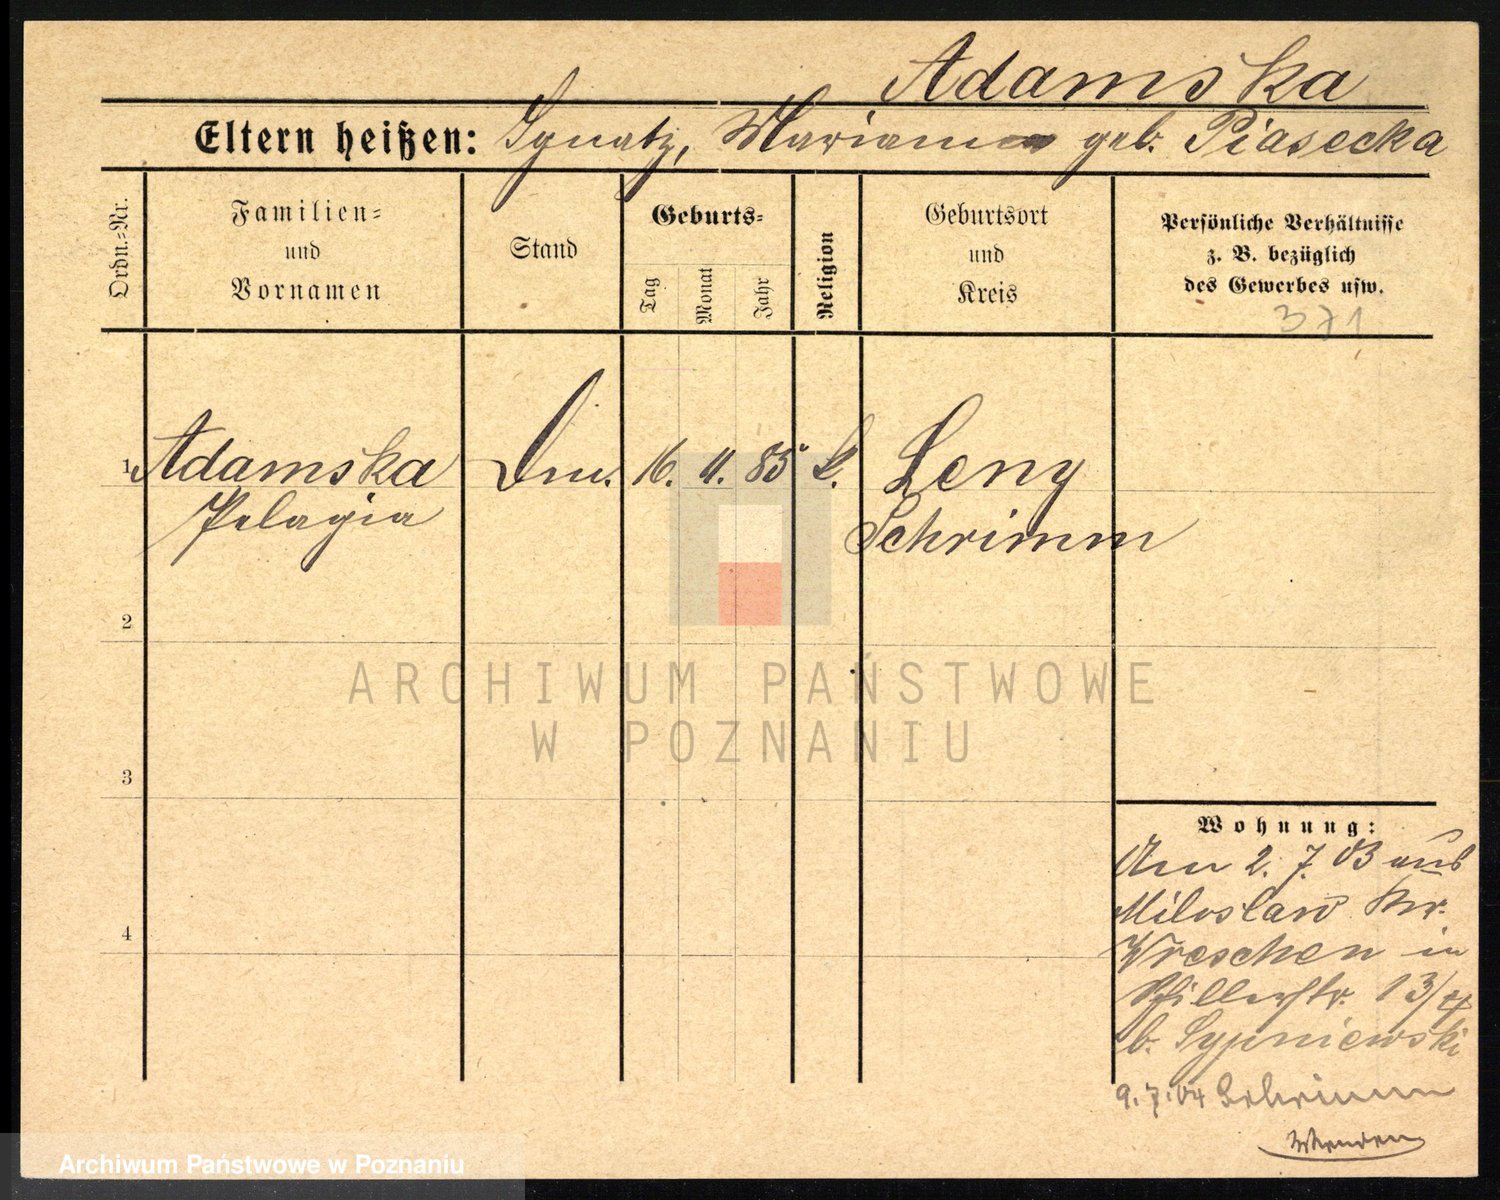 Adamska
Eltern heißen: Ignatz, Marianna geb. Piasecka
Ordn.-Nr.
Familien-
und
Vornamen
Stand
Geburts-
Tag
Monat
Jahr
Religion
Geburtsort
und
Kreis
Persönliche Verhältnisse
z. B. bezüglich
des Gewerbes usw.
371
1 Adamska
Pelagia
16. 11. 85 k.
Leng
Schrimm
2
3
4
ARCHIWUM PAŃSTWOWE
W POZNANIU
Wohnung:
Am 2. 7. 03 aus
Miloslaw Kr.
Wreschen in
Schillerstr. 13/4
b. Sypniewski
9. 7. 04 Schrimm
Wenden
Archiwum Państwowe w Poznaniu